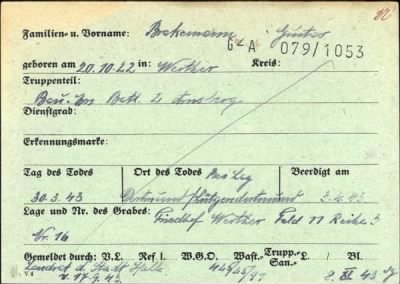 Familien- u. Vorname: Brekemann Gustav
G-A 079/1053
geboren am 20.10.22 in: Werther Kreis:
Truppenteil:
Bau-Ers. Batl. 2 Arnsberg
Dienstgrad:
Erkennungsmarke:
Tag des Todes Ort des Todes Beerdigt am
30.3.43 Dortmund/Lütgendortmund 3.4.43
Lage und Nr. des Grabes: Friedhof Werther Feld 11 Reihe 3
Nr. 16
Gemeldet durch: V.L. Ref I. W.G.O. Wast.- Trupp.- San.- L/ Bl.
Landrat d. Stadt Halle
v. 17.9.43 8. XI 43